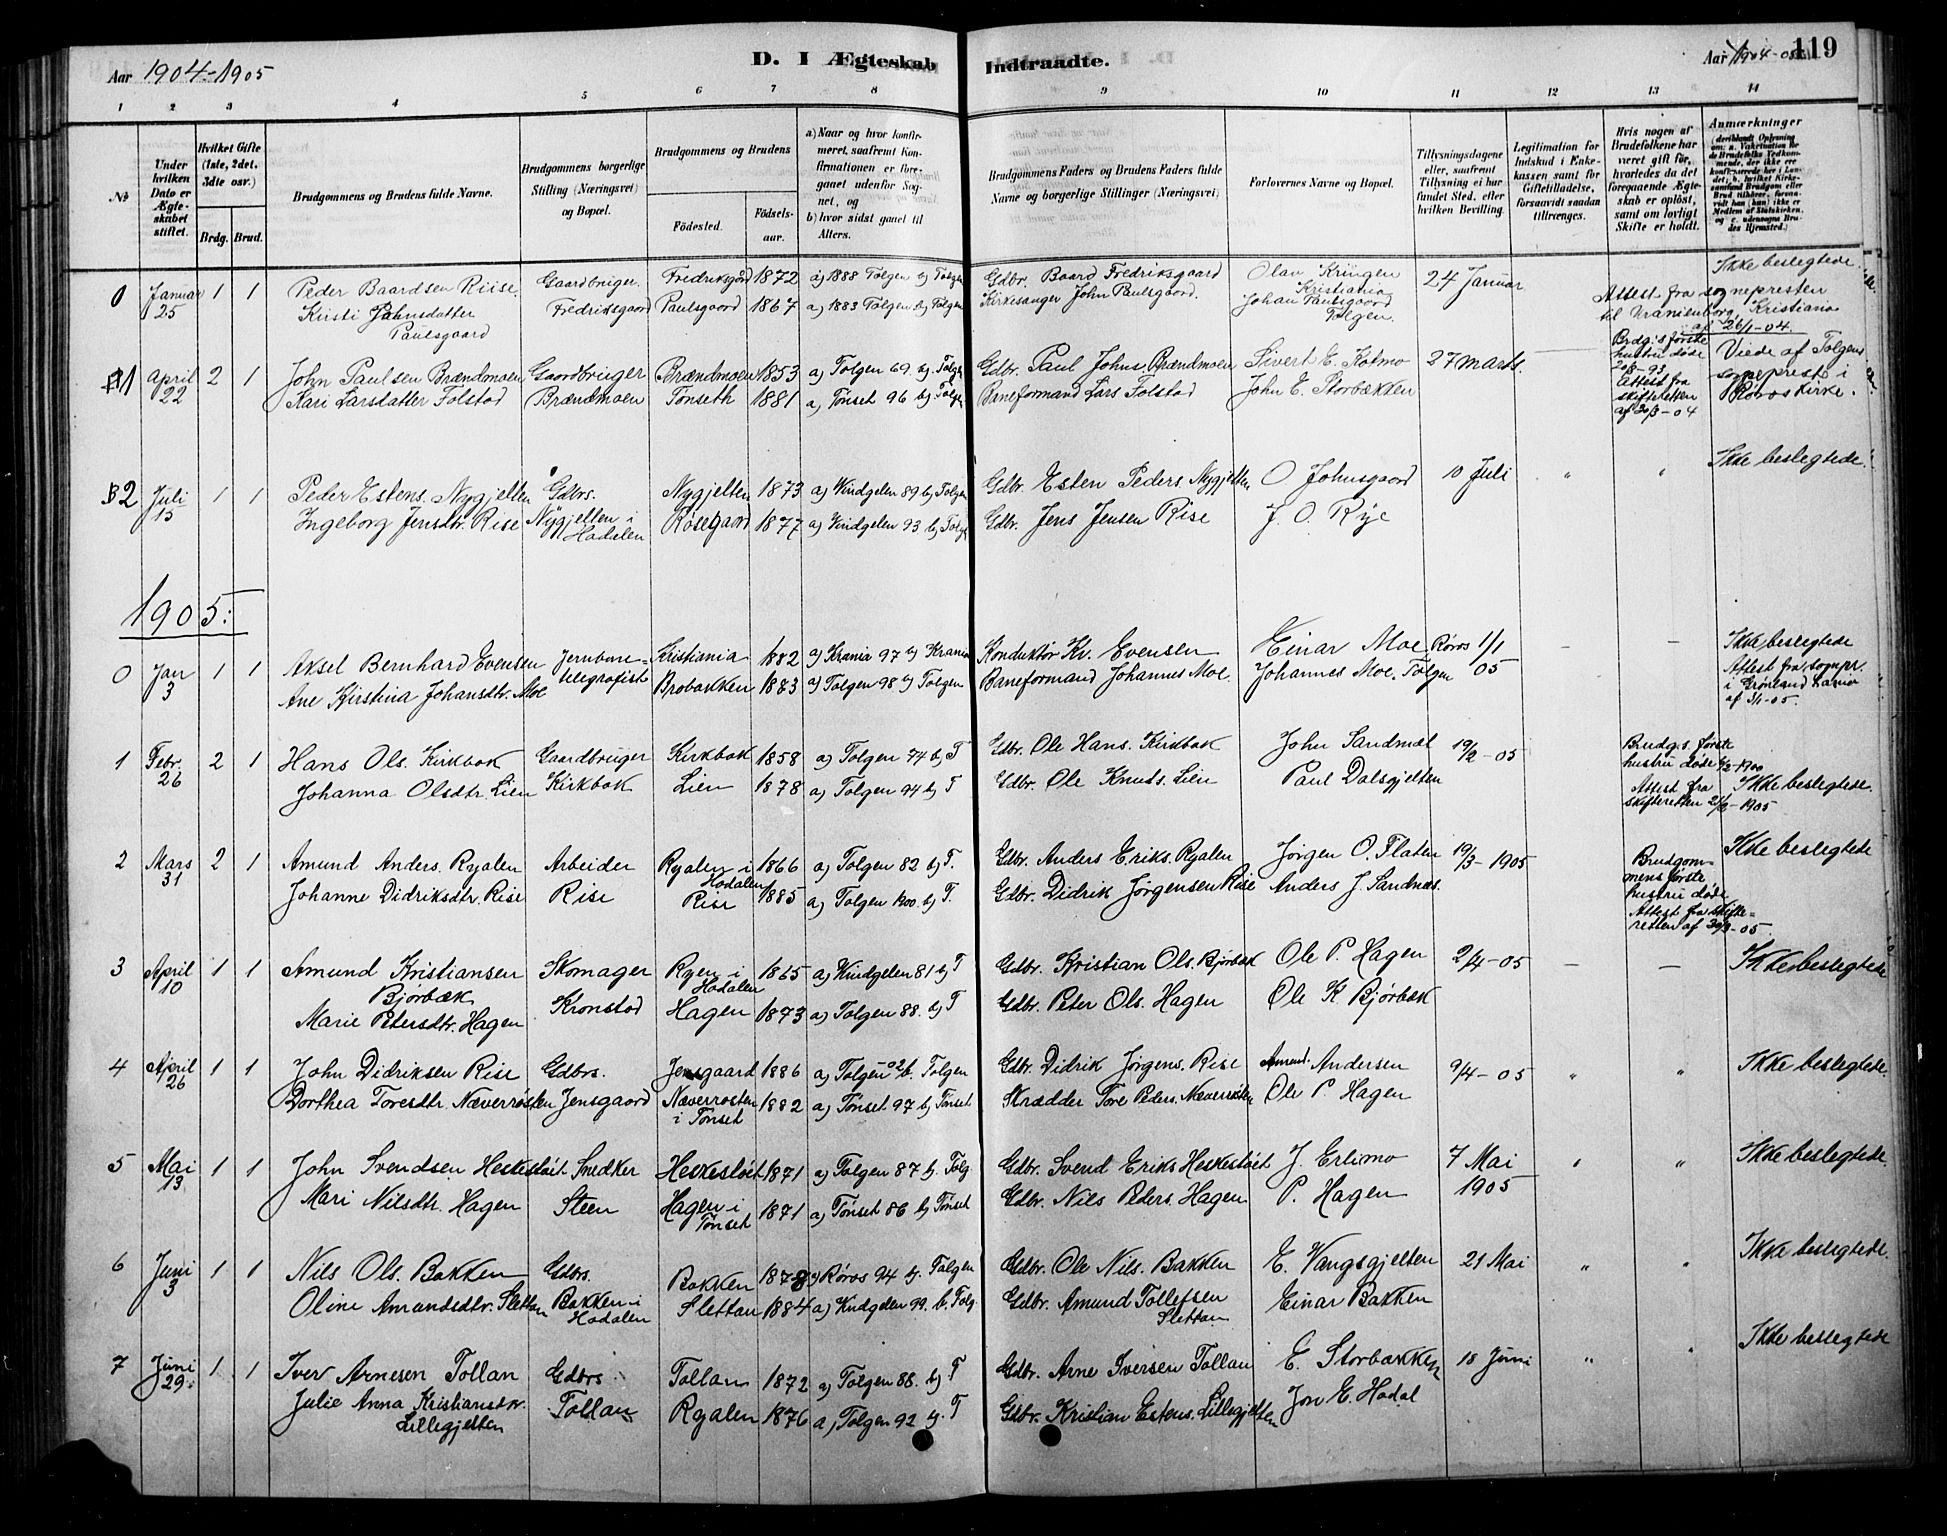 Aar 1904-1905
D. I Ægteskab Indtraadte.
Aar 1904-05 119
1 2 3 4 5 6 7 8 9 10 11 12 13 14
№
Under hvilken Dato er Ægteskabet stiftet.
Hvilket Gifte (1ste, 2det, 3dte osv.)
Brdg. Brud.
Brudgommens og Brudens fulde Navne.
Brudgommens borgerlige Stilling (Næringsvei) og Bopæl.
Brudgommens og Brudens
Fødested.
Fødselsaar.
a) Naar og hvor konfirmeret, saafremt Konfirmationen er foreganet udenfor Sognet, og
b) hvor sidst gaaet til Alters.
Brudgommens Faders og Brudens Faders fulde Navne og borgerlige Stillinger (Næringsvei)
Forlovernes Navne og Bopæl.
Tillysningsdagene eller, saafremt Tillysning ei har fundet Sted, efter hvilken Bevilling.
Legitimation for Indskud i Enkekassen samt for Giftetilladelse, forsaavidt saadan tiltrænges.
Hvis nogen af Brudefolkene har været gift før, hvorledes da det foregaaende Ægteskab er opløst, samt om lovligt Skifte er holdt.
Anmærkninger
0 Januar 25 1 1 Peder Baardsen Riise. Gaardbruger. Fredriksgård 1872 a) 1888 Tolgen b) Tolgen Gdbr. Baard Fredriksgaard Olav Kringen Kristiania 24 Januar Ikke beslegtede.
Kirsti Johnsdatter Paulsgaard Fredriksgaard Paulsgaard 1867 a) 1883 Tolgen b) Tolgen Kirkesanger John Paulsgaard. Johan Paulsgaard Tolgen. Attest fra sognepresten til Uranienborg, Kristiania af 26/1-04.
1 April 22 2 1 John Paulsen Brændmoen Gaardbruger Brændmoen 1853 a) Tolgen 69 b) Tolgen Gdbr. Paul Johns. Brændmoen Sivert E. Kotmo 27 marts. Brdg.'s første hustru døde 20/8-93 Attest fra skifteretten af 30/3-04 Viede af Tolgens sogneprest i Røros Kirke.
Kari Larsdatter Folstad Brændmoen Tønseth 1881 a) Tønset 96 b) Tolgen Baneformand Lars Folstad John E. Storbækken
2 Juli 15 1 1 Peder Estens. Nygjelten Gdbrs. Nygjelten 1873 a) Vindgelen 89 b) Tolgen Gdbr. Esten Peders. Nygjelten O Johnsgaard 10 Juli " " Ikke beslegtede.
Ingeborg Jensdtr. Rise Nygjelten i Hodalen Risegaard 1877 a) Vindgelen 93 b) Tolgen Gdbr. Jens Jensen Rise J. O. Rye
1905:
0 Jan 3 1 1 Aksel Bernhard Evensen Jernbanetelegrafist Kristiania 1882 a) Krania 97 b) Krania Konduktør Kr. Evensen Einar Moe Røros 1/1 05 — — Ikke beslegtede
Ane Kjerstina Johansdtr. Moe Brobakken 1883 a) Tolgen 98 b) Tolgen Baneformand Johannes Moe. Johannes Moe. Tolgen Attest fra sognepr. i Grønland Kania af 3/1-05.
1 Febr. 26 2 1 Hans Ols. Kirkbak Gaardbruger Kirkbak 1858 a) Tolgen 74 b) T Gdbr. Ole Hans. Kirkbak John Sandmæl 19/2-05 Brudg.s første hustru døde 1900 Attest fra skifteretten 21/2-1905 Ikke beslegtede.
Johanna Olsdtr. Lien Kirkbak Lien 1878 a) Tolgen 94 b) T Gdbr. Ole Knuds. Lien Paul Dalsgjelten
2 Mars 31 2 1 Amund Anders. Ryalen Arbeider Ryalen i Hodalen 1866 a) Tolgen 82 b) T. Gdbr. Anders Eriks. Ryalen Jørgen O. Flaten 19/3-1905 Brudgommens første hustru døde Attest fra skifteretten af 30/3-05. Ikke beslegtede
Johanne Didriksdtr. Rise Rise Rise 1885 a) Tolgen 1900. b) T. Gdbr. Didrik Jørgensen Rise Anders J. Sandnæs.
3 April 10 1 1 Amund Kristiansen Bjørbæk Skomager Ryen i Hodalen 1865 a) Vindgelen 81 b) T Gdbr. Kristian Ols. Bjørbæk Ole P. Hagen 2/4-05 — — Ikke beslegtede
Marie Petersdtr. Hagen Kronstad Hagen 1873 a) Tolgen 88. b) T Gdbr. Peter Ols. Hagen Ole K Bjørbæk
4 April 26 1 1 John Didriksen Rise Gdbrs. Jensgaard 1886 a) Tolgen 02 b. Tolgen Gdbr. Didrik Jørgens. Rise Amund Andersen 9/4-05 " " Ikke beslegtede.
Dorthea Toresdtr. Næverrøsten Jensgaard Næverrøsten i Tønset 1882 a) Tønset 97 b) Tønset Skrædder Tore Peders. Næverrøsten Ole P. Hagen
5 Mai 13 1 1 John Svendsen Heskesløit. Snedker Heskesløit 1871 a) Tolgen 87 b) Tolg Gdbr. Svend Eriks Heskesløit J. Erlimo 7 Mai 1905 " " Ikke beslegtede.
Mari Nilsdtr. Hagen Steen Hagen i Tønset 1871 a) Tønset 86 b) Tønset Gdbr. Nils Peders. Hagen P. Hagen
6 Juni 3 1 1 Nils Ols. Bakken Gdbrs. Bakken 1878 a) Røros 94 b). Tolgen Gdbr. Ole Nils. Bakken E. Vangsgjelten 21 Mai " " Ikke beslegtede.
Oline Amundsdtr. Slettan Bakken i Hodalen Slettan 1884 a) Vindgelen 99. b. Tolg. Gdbr. Amund Tollefsen Slettan Einar Bakken
7 Juni 29. 1 1 Iver Arnesen Tollan Gdbrs Tollan 1872 a) Tolgen 88. b) T Gdbr. Arne Iversen Tollan E. Storbækken 18 Juni " " Ikke beslegtede
Julie Anna Kristiansdtr. Lillegjelten Tollan Ryalen 1876 a) Tolgen 92 b). T Gdbr. Kristian Estens. Lillegjelten Jon E. Hodal